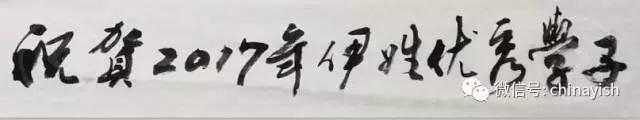 祝賀2017年伊姓优秀學子
微信号: chinayish